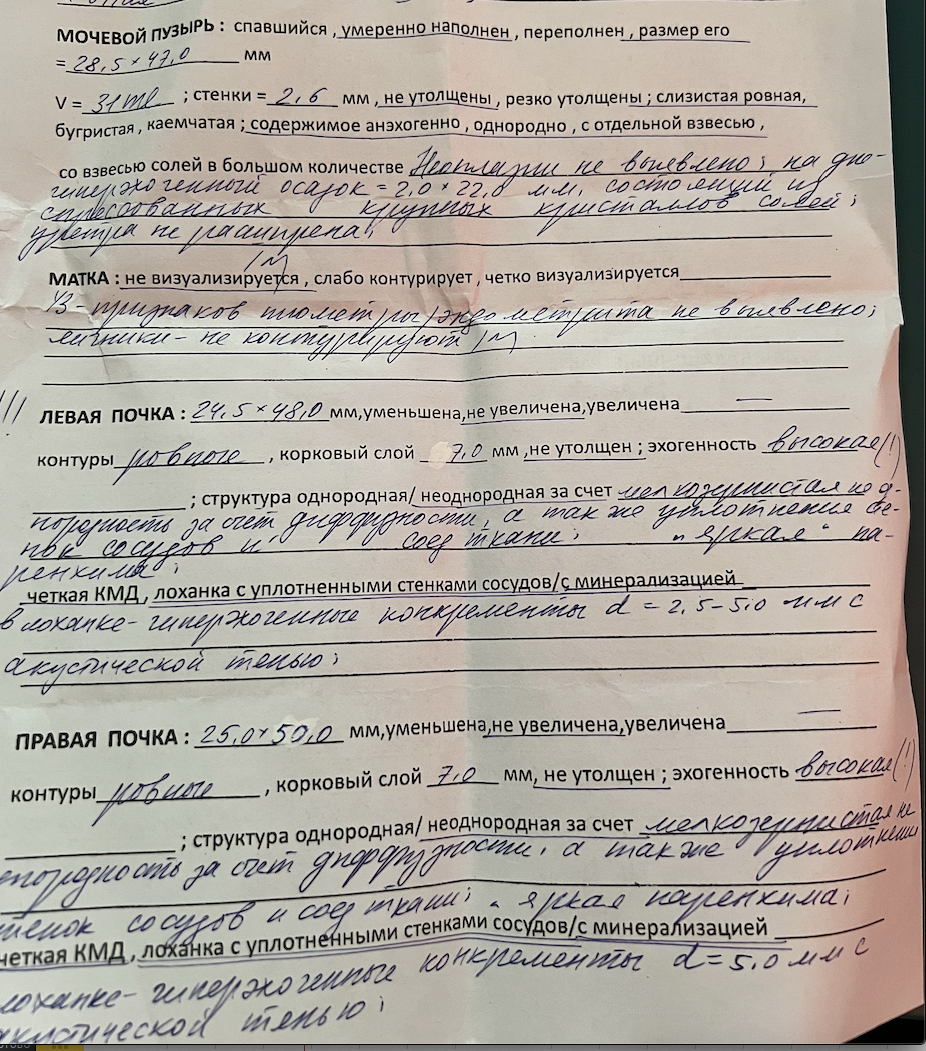 МОЧЕВОЙ ПУЗЫРЬ : спавшийся , умеренно наполнен , переполнен , размер его
= 28,5 × 47,0 мм
V = 31 ml ; стенки = 2,6 мм , не утолщены , резко утолщены ; слизистая ровная,
бугристая , каемчатая ; содержимое анэхогенно , однородно , с отдельной взвесью ,
со взвесью солей в большом количестве Неоплазии не выявлено; на дне-
гиперэхогенный осадок = 2,0 × 22,0 мм, состоящий из
спрессованных крупных кристаллов солей;
уретра не расширена;
МАТКА : не визуализируется , слабо контурирует , четко визуализируется
УЗ-признаков пиометры/эндометрита не выявлено;
яичники- не контурируют
ЛЕВАЯ ПОЧКА : 24,5 × 48,0 мм,уменьшена,не увеличена,увеличена —
контуры ровные , корковый слой 7,0 мм ,не утолщен ; эхогенность высокая(!)
; структура однородная/ неоднородная за счет мелкозернистая неод-
нородность за счет диффузности, а так же уплотнение сте-
нок сосудов и соед ткани; "яркая" па-
ренхима;
четкая КМД , лоханка с уплотненными стенками сосудов/с минерализацией
в лоханке- гиперэхогенные конкременты d = 2,5-5,0 мм с
акустической тенью;
ПРАВАЯ ПОЧКА : 25,0 × 50,0 мм,уменьшена,не увеличена,увеличена —
контуры ровные , корковый слой 7,0 мм, не утолщен ; эхогенность высокая(!)
; структура однородная/ неоднородная за счет мелкозернистая не
однородность за счет диффузности, а так же уплотнение
стенок сосудов и соед ткани; "яркая паренхима;
четкая КМД , лоханка с уплотненными стенками сосудов/с минерализацией
лоханке- гиперэхогенные конкременты d = 5,0 мм с
акустической тенью;